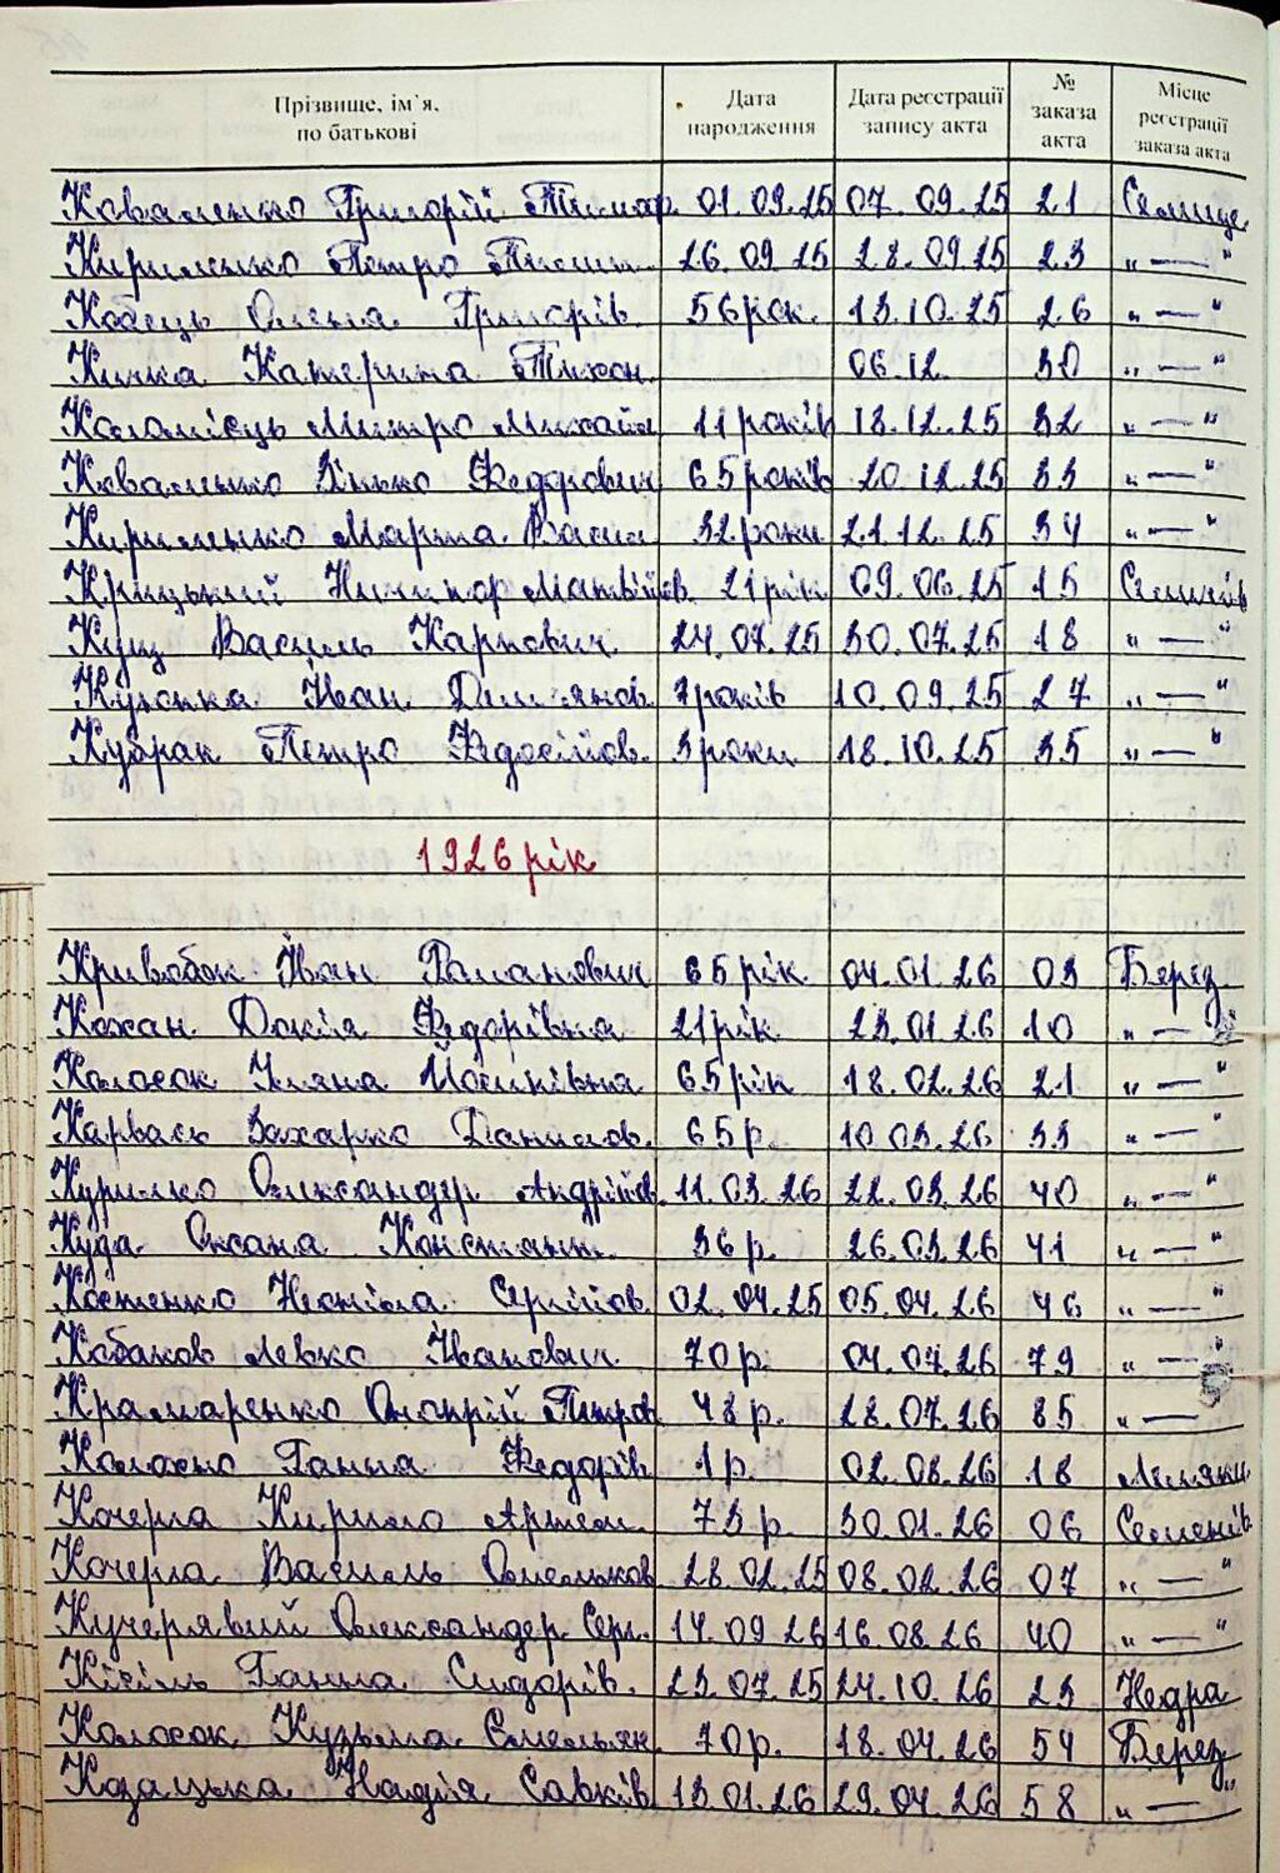 Прізвище, ім`я, по батькові Дата народження Дата реєстрації запису акта № заказа акта Місце реєстрації заказа акта
Коваленко Григорій Тимоф. 01.09.25 07.09.25 21 Селище
Кириленко Петро 26.09.25 28.09.25 23 "—"
Кобець Олена Григорів. 56 рок. 13.10.25 26 "—"
Кичка Катерина Тихон. 06.12. 30 "—"
Коломієць Митро Михайл 11 років 18.12.25 32 "—"
Коваленко Зінько Федорович 65 років 20.12.25 33 "—"
Кириленко Марта Васил. 32 роки 21.12.25 34 "—"
Крицький Ничипор Матвійов. 21 рік 09.06.25 15 Семенів
Кущ Василь Карпович 24.07.25 30.07.25 18 "—"
Іван Дем'янов. 7 років 10.09.25 27 "—"
Кубрак Петро Федосійов. 3 роки 18.10.25 35 "—"
1926 рік
Кривобок Іван Романович 65 рік 04.01.26 03 Берез.
Кохан Докія Федорівна 21 рік 23.01.26 10 "—"
Колосок Уляна Йосипівна 65 рік 18.02.26 21 "—"
Карвась Захарко Данилов. 65 р. 10.03.26 33 "—"
Курилко Олександер Андрійов. 11.03.26 22.03.26 40 "—"
Куда Оксана Констант. 36 р. 26.03.26 41 "—"
Костенко Неоніла Сергійов. 02.04.25 05.04.26 46 "—"
Кобаков Левко Іванович 70 р. 04.07.26 79 "—"
Крамаренко Онопрій Петров 48 р. 28.07.26 85 "—
Ганна Федорів 1 р. 02.08.26 18
Кочерга Кирило Артем. 73 р. 30.01.26 06 Семенів
Кочерга Василь Омельков 28.02.25 08.02.26 07 "—"
Кучерявий Олександер Серг. 14.09.26 16.08.26 40 "—"
Кізіль Ганна Сидорів. 23.07.25 24.10.26 23 Недра
Колосок Кузьма Омельян. 70 р. 18.04.26 54 Берез.
Козацька Надія Савків 13.01.26 29.04.26 58 "—"